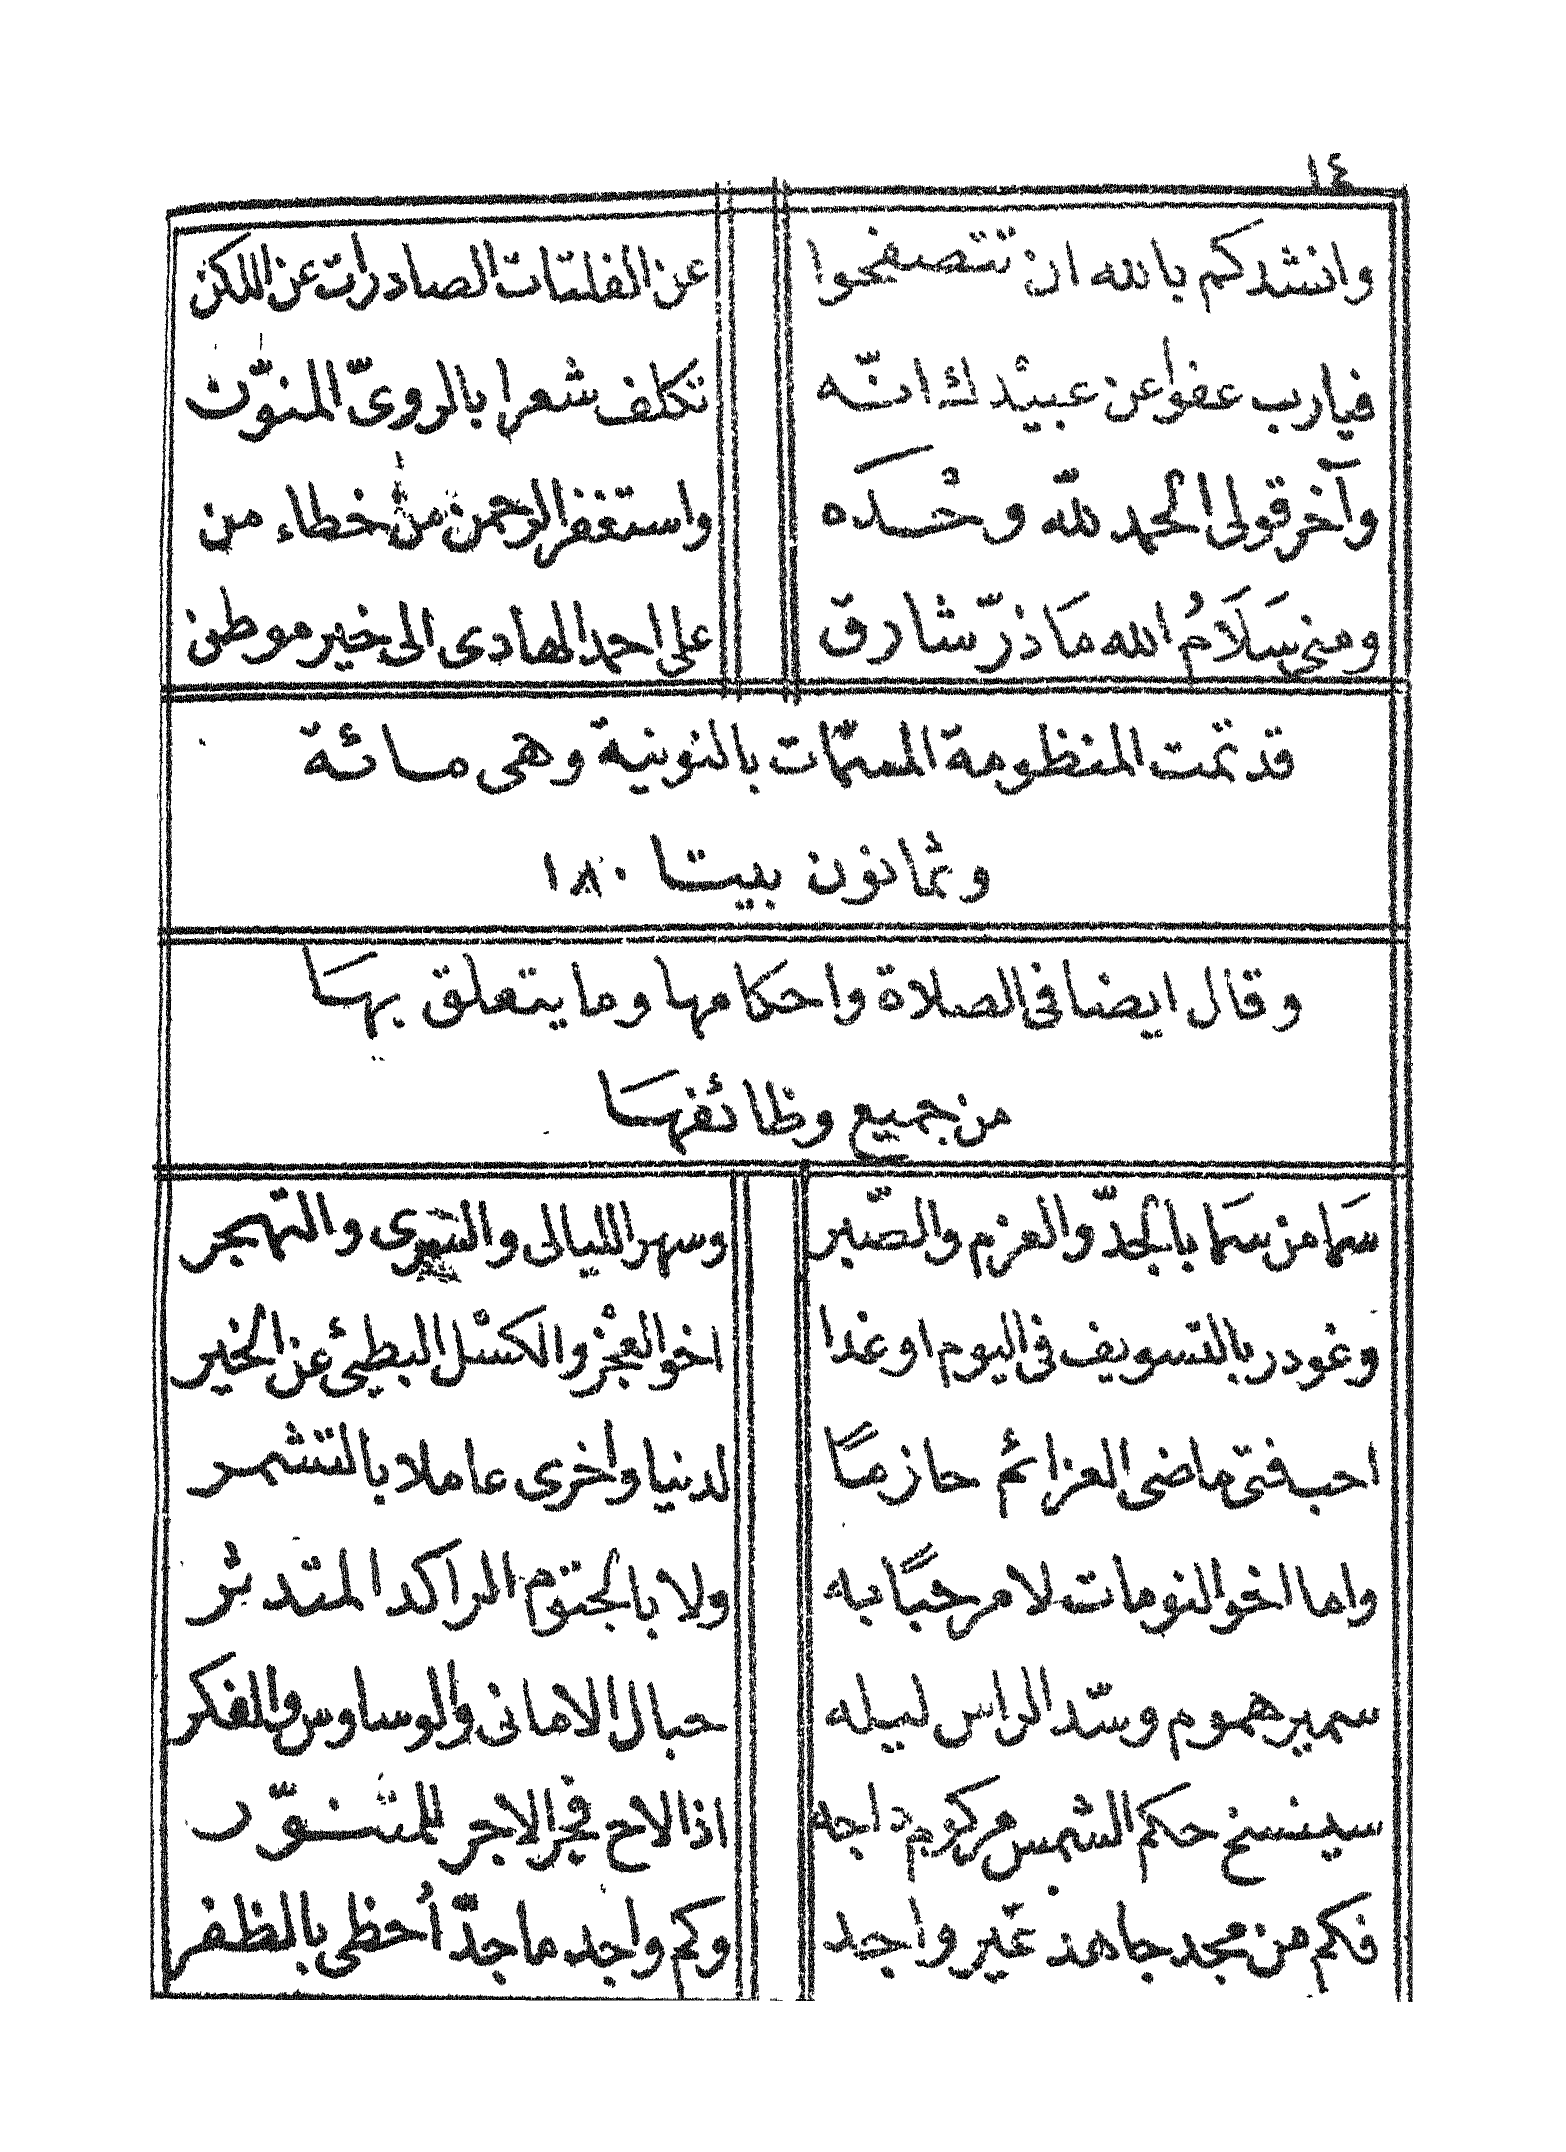 ١٤
وانشدكم بالله ان تتصفحوا عن الفلتات الصادرات عن اللكن
فيارب عفوا عن عبيْدك انّه تكلف شعرا بالروىّ المنوّن
وآخر قولى الحمد للّه وحْدَه واستغفر الرحمن من خطاء من
ومنى سَلَامُ الله مَا ذرّ شارق على احمد الهادى الى خير موطن
قد تمت المنظومة المسمّات بالنونية وهى مائة
وثمانون بيتا ١٨٠
وقال ايضا فى الصلاة واحكامها وما يتعلق بهَا
من جميع وظائفهَا
سَما من سَما بالجدّ والعزم والصّبر وسهر الليالى والسرى والتهجر
وغودر بالتسويف فى اليوم او غدا اخو العجْز والكسْل البطيئ عن الخير
احب فتى ماضى العزائم حازمًا لدنيا واخرى عاملا بالتشمر
واما اخو النومات لا مرحبًا به ولا بالجثوم الراكد المتدثر
سمير هموم وسّد الراس ليله حبال الامانى والوساوس والفكر
سينسخ حكم الشمس مركوم داجه اذا لاح فجر الاجر للمتنوّر
فكم من مجد جاهد غير واجد وكم واجد ما جدّ اُحظى بالظفر